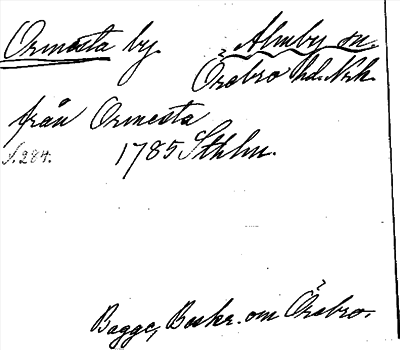 Ormesta by. Almby sn.
Örebro hd. Nrk.
från Ormesta
s. 284. 1785 Sthlm.
Bagge, Beskr. om Örebro.